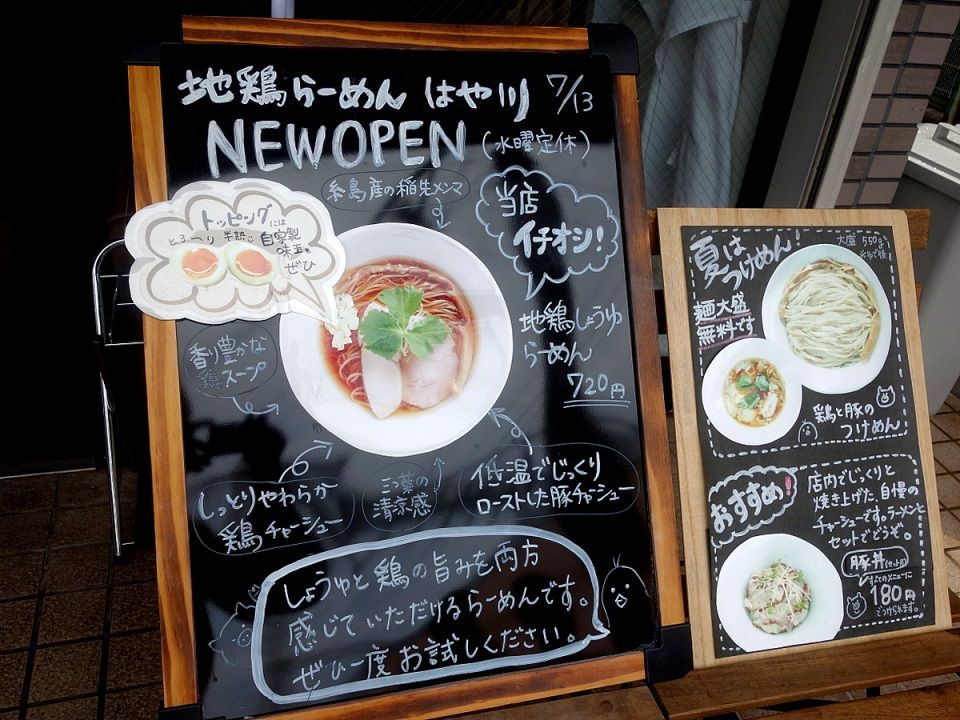 地鶏らーめん はや川 7/13
NEW OPEN (水曜定休)
糸島産の穂先メンマ
トッピングには
とろ〜り半熟の 自家製
味玉を
ぜひ
当店
イチオシ!
地鶏しょうゆ
らーめん
720円
香り豊かな
鶏スープ
しっとりやわらか
鶏チャーシュー
三つ葉の
清涼感
低温でじっくり
ローストした豚チャーシュー
しょうゆと鶏の旨みを両方
感じていただけるらーめんです。
ぜひ一度お試しください。
夏は
つけめん!
大盛 550g
麺大盛
無料です
鶏と豚の
つけめん
おすすめ!
店内でじっくりと
焼き上げた、自慢の
チャーシューです。ラーメンと
セットでどうぞ。
豚丼(セット用)
すべてのメニューに
180円
でつけられます。